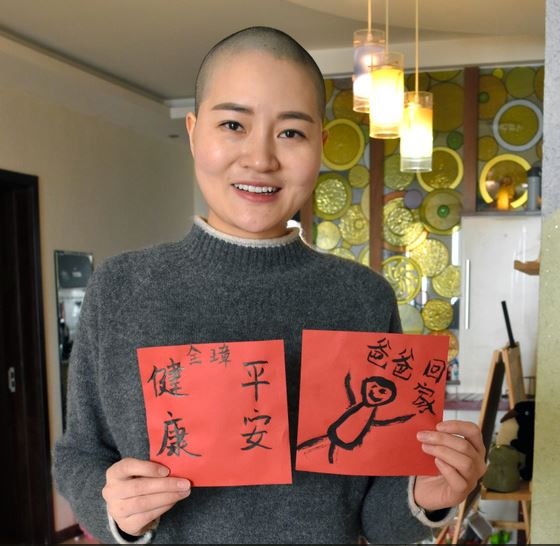 全璋
平安
健康
爸爸回家